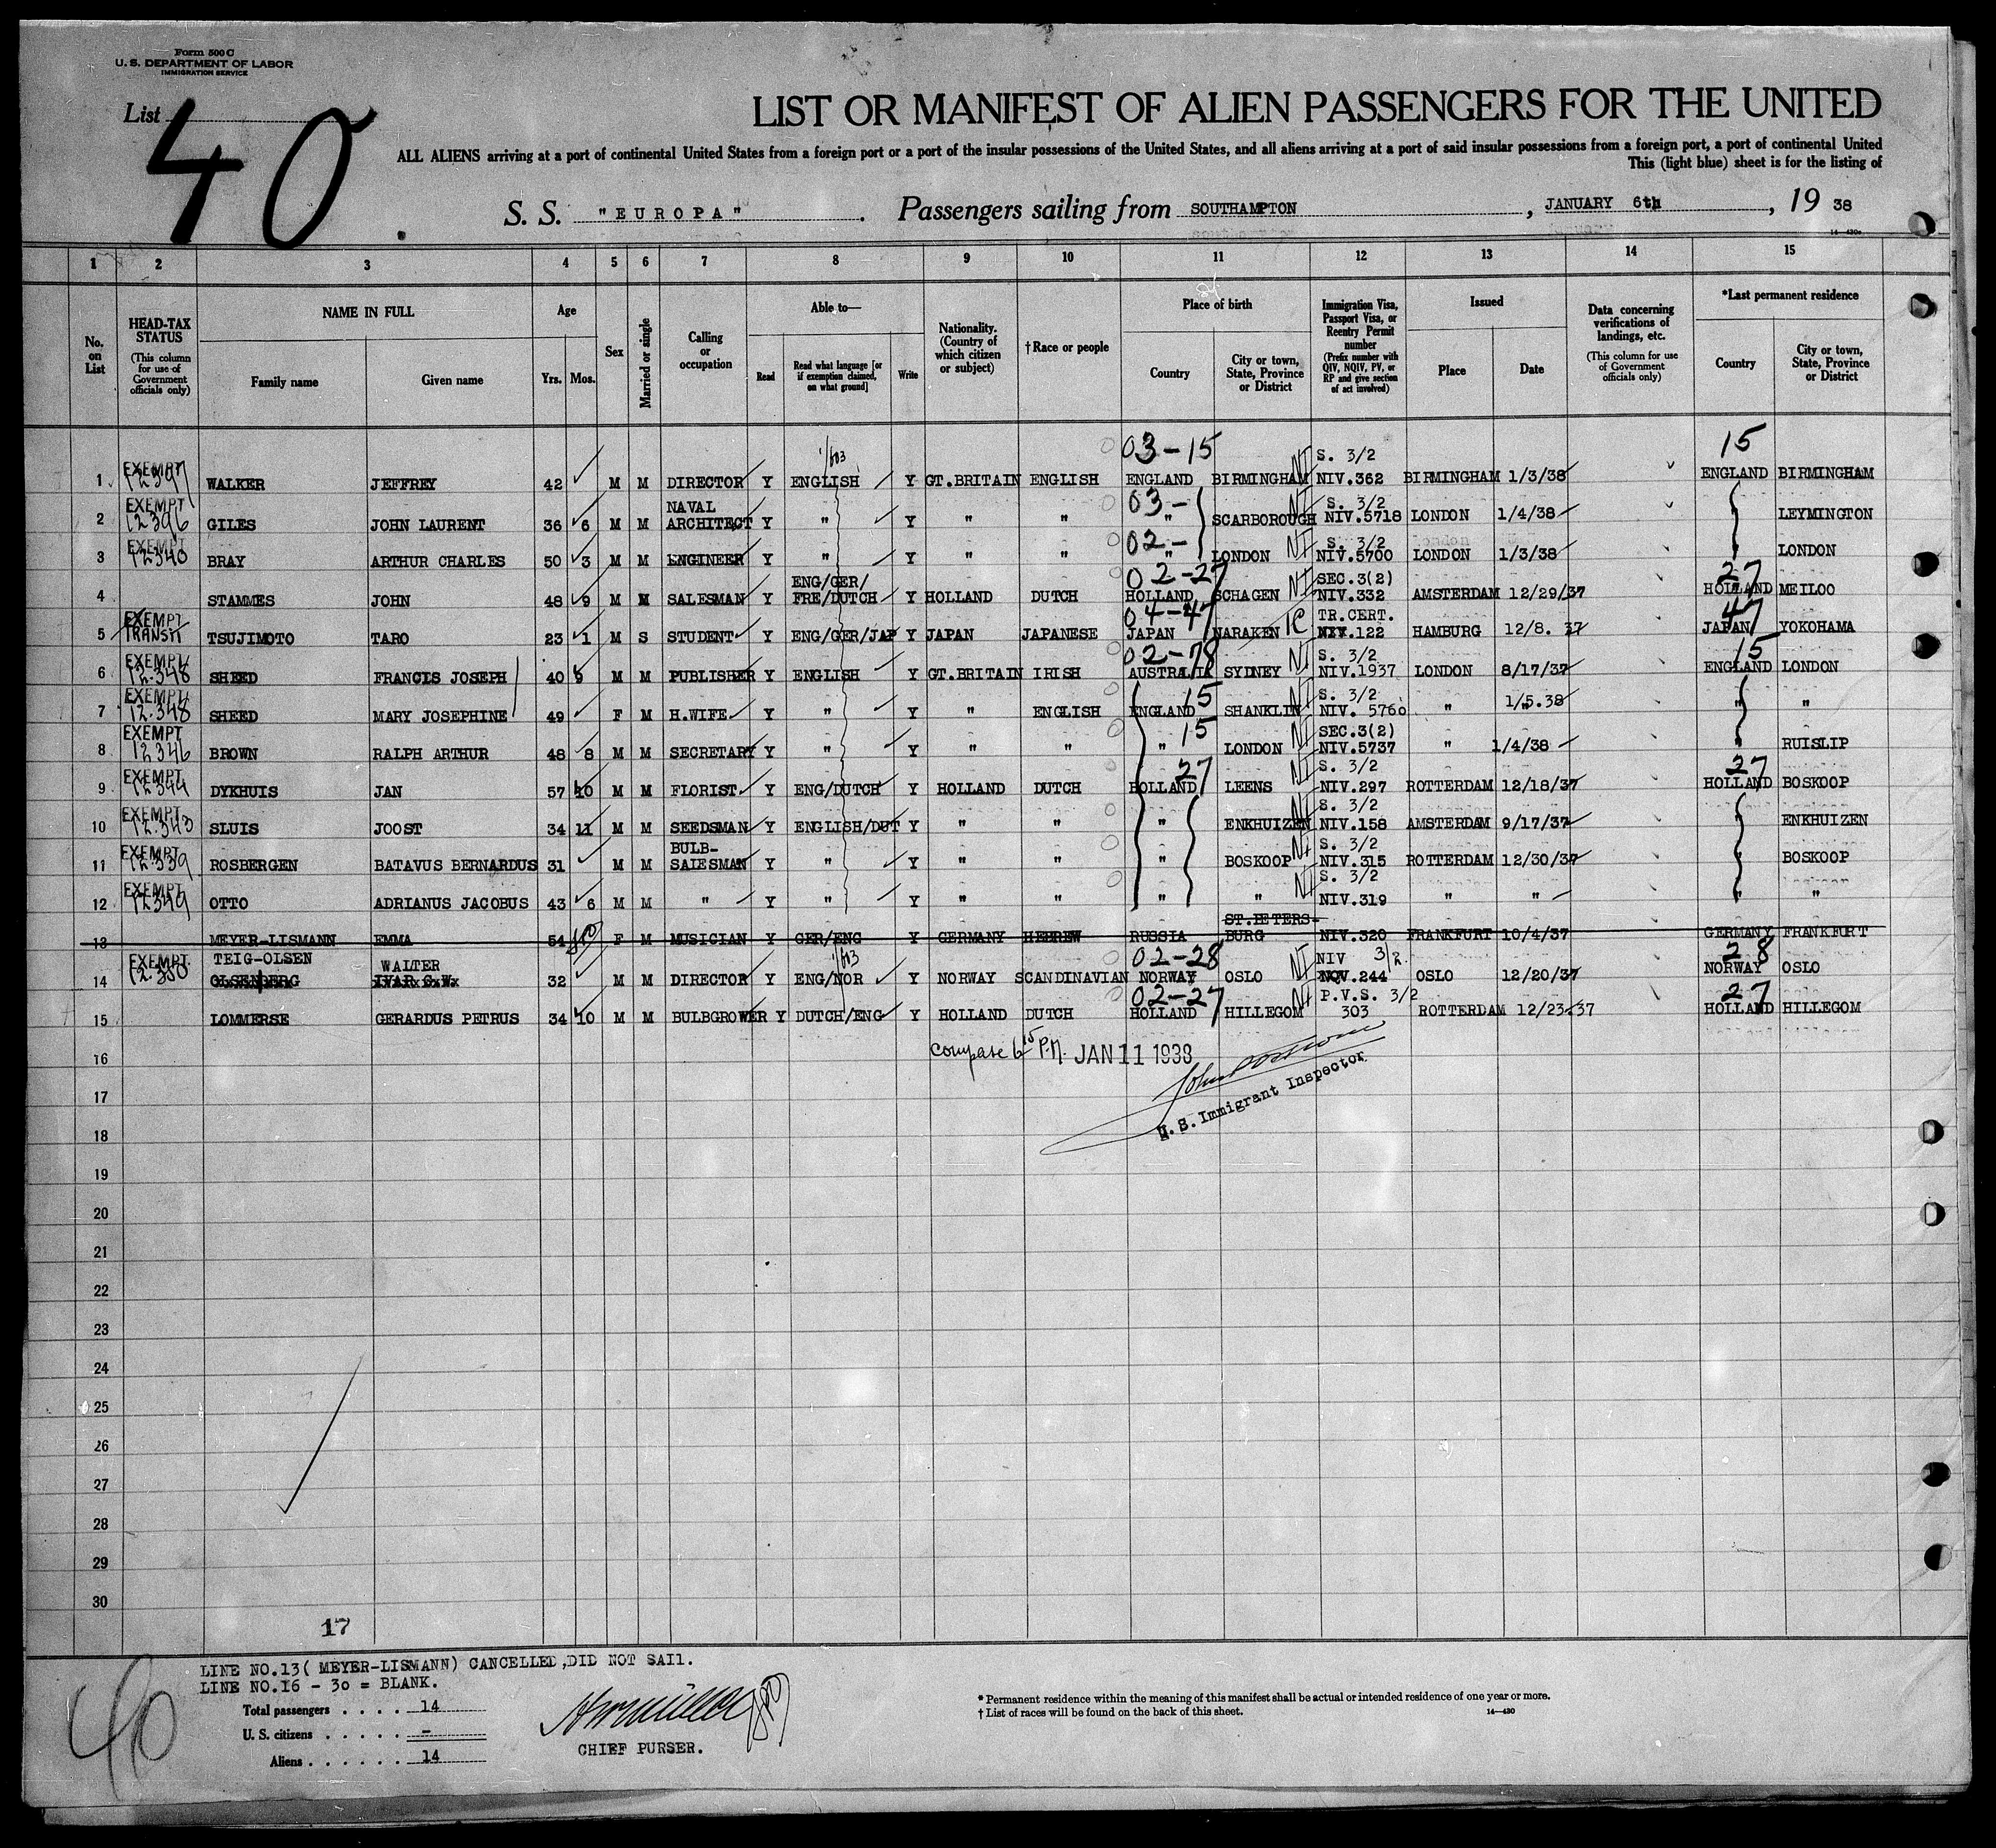 Form 500 C
U. S. DEPARTMENT OF LABOR
IMMIGRATION SERVICE
List 40
LIST OR MANIFEST OF ALIEN PASSENGERS FOR THE UNITED
ALL ALIENS arriving at a port of continental United States from a foreign port or a port of the insular possessions of the United States, and all aliens arriving at a port of said insular possessions from a foreign port, a port of continental United
This (light blue) sheet is for the listing of
S. S. "EUROPA" . Passengers sailing from SOUTHAMPTON , JANUARY 6th , 19 38
14—430a
1 2 3 4 5 6 7 8 9 10 11 12 13 14 15
No. on List
HEAD-TAX STATUS (This column for use of Government officials only)
NAME IN FULL
Family name Given name
Age
Yrs. Mos.
Sex
Married or single
Calling or occupation
Able to—
Read Read what language [or if exemption claimed, on what ground] Write
Nationality. (Country of which citizen or subject)
†Race or people
Place of birth
Country City or town, State, Province or District
Immigration Visa, Passport Visa, or Reentry Permit number (Prefix number with QIV, NQIV, PV, or RP and give section of act involved)
Issued
Place Date
Data concerning verifications of landings, etc. (This column for use of Government officials only)
*Last permanent residence
Country City or town, State, Province or District
03-15 S. 3/2 15
1 EXEMPT 12397 WALKER JEFFREY 42 M M DIRECTOR Y ENGLISH Y GT.BRITAIN ENGLISH ENGLAND BIRMINGHAM NI NIV.362 BIRMINGHAM 1/3/38 ENGLAND BIRMINGHAM
NAVAL 03- S. 3/2
2 EXEMPT 12396 GILES JOHN LAURENT 36 6 M M ARCHITECT Y " Y " " " SCARBOROUGH NI NIV.5718 LONDON 1/4/38 LEYMINGTON
02- S. 3/2
3 EXEMPT 12340 BRAY ARTHUR CHARLES 50 3 M M ENGINEER Y " Y " " " LONDON NI NIV.5700 LONDON 1/3/38 LONDON
ENG/GER/ 02-27 SEC.3(2) 27
4 STAMMES JOHN 48 9 M M SALESMAN Y FRE/DUTCH Y HOLLAND DUTCH HOLLAND SCHAGEN NI NIV.332 AMSTERDAM 12/29/37 HOLLAND MEILOO
04-47 TR.CERT. 47
5 EXEMPT TRANSIT TSUJIMOTO TARO 23 1 M S STUDENT Y ENG/GER/JAP Y JAPAN JAPANESE JAPAN NARAKEN TC 122 HAMBURG 12/8. 37 JAPAN YOKOHAMA
02-78 S. 3/2 15
6 EXEMPT 12348 SHEED FRANCIS JOSEPH 40 9 M M PUBLISHER Y ENGLISH Y GT.BRITAIN IRISH AUSTRALIA SYDNEY NI NIV.1937 LONDON 8/17/37 ENGLAND LONDON
15 S. 3/2
7 EXEMPT 12348 SHEED MARY JOSEPHINE 49 F M H.WIFE Y " Y " ENGLISH ENGLAND SHANKLIN NI NIV. 5760 " 1/5.38 " "
15 SEC.3(2)
8 EXEMPT 12346 BROWN RALPH ARTHUR 48 8 M M SECRETARY Y " Y " " " LONDON NI NIV.5737 " 1/4/38 " RUISLIP
27 S. 3/2 27
9 EXEMPT 12344 DYKHUIS JAN 57 10 M M FLORIST Y ENG/DUTCH Y HOLLAND DUTCH HOLLAND LEENS NI NIV.297 ROTTERDAM 12/18/37 HOLLAND BOSKOOP
S. 3/2
10 EXEMPT 12343 SLUIS JOOST 34 11 M M SEEDSMAN Y ENGLISH/DUT Y " " " ENKHUIZEN NI NIV.158 AMSTERDAM 9/17/37 " ENKHUIZEN
BULB- S. 3/2
11 EXEMPT 12339 ROSBERGEN BATAVUS BERNARDUS 31 M M SALESMAN Y " Y " " " BOSKOOP NI NIV.315 ROTTERDAM 12/30/37 " BOSKOOP
S. 3/2
12 EXEMPT 12349 OTTO ADRIANUS JACOBUS 43 6 M M " Y " Y " " " " NI NIV.319 " " " "
ST.PETERS-
13 MEYER-LISMANN EMMA 54 F M MUSICIAN Y GER/ENG Y GERMANY HEBREW RUSSIA BURG NIV.320 FRANKFURT 10/4/37 GERMANY FRANKFURT
TEIG-OLSEN WALTER 02-28 NIV 3/2 28
14 EXEMPT 12350 OLSENBERG IVAR G.W. 32 M M DIRECTOR Y ENG/NOR Y NORWAY SCANDINAVIAN NORWAY OSLO NI NOV.244 OSLO 12/20/37 NORWAY OSLO
02-27 P.V.S. 3/2 27
15 LOMMERSE GERARDUS PETRUS 34 10 M M BULBGROWER Y DUTCH/ENG Y HOLLAND DUTCH HOLLAND HILLEGOM NI 303 ROTTERDAM 12/23.37 HOLLAND HILLEGOM
16 Compare 6 15 P.M. JAN 11 1938
17
U. S. Immigrant Inspector
18
19
20
21
22
23
24
25
26
27
28
29
30
17
LINE NO.13( MEYER-LISMANN) CANCELLED,DID NOT SAIl.
LINE NO.16 - 30 = BLANK.
Total passengers . . . . 14
U. S. citizens . . . . . -
Aliens . . . . . . 14
40
CHIEF PURSER.
* Permanent residence within the meaning of this manifest shall be actual or intended residence of one year or more.
† List of races will be found on the back of this sheet.
14—430